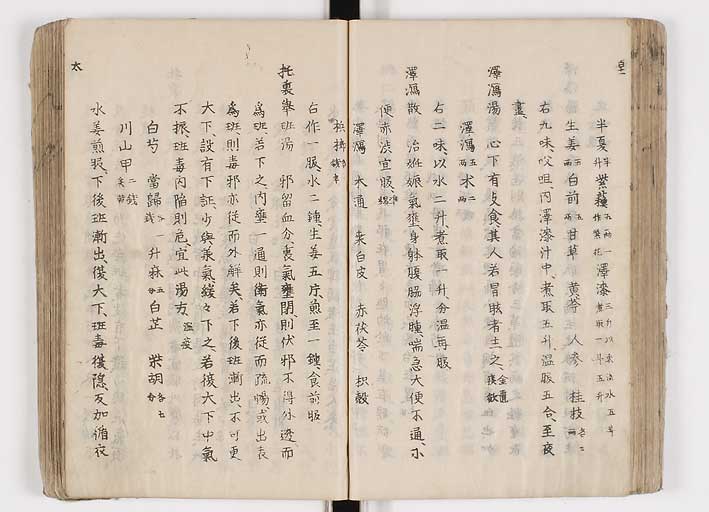 半夏 半升 紫薓 五両一作紫菀 澤漆 三斤以東流水五斗煮取一斗五升
生姜 五両 白前 五両 甘草 黄芩 人参 桂枝 各三両
右九味㕮咀内澤漆汁中煮取五升温服五合至夜
盡
澤瀉湯 心下有支飲其人苦冒眩者主之 金匱痰飲
澤瀉 五両 朮 二両
右二味以水二升煮取一升分温再服
澤瀉散 治姙娠氣壅身躰腹脇浮腫喘急大便不通小
便赤渋宜服
澤瀉 木通 桑白皮 赤茯苓 枳殻
檳榔
右作一服水二鍾生姜五片煎至一鍾食前服
托裏舉斑湯 邪留血分裏氣壅閉則伏邪不得外透而
為斑若下之内壅一通則衛氣亦従而疏暢或出表
為斑則毒邪亦従而外解矣若下後斑漸出不可更
大下設有下証少與承氣緩々下之若復大下中氣
不振斑毒内陥則危宜此湯方 温疫
白芍 當歸 各一銭 升麻 五分 白芷 柴胡 各七分
川山甲 二銭
水姜煎服下後斑漸出復大下斑毒復隠反加循衣